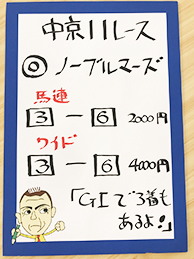 中京11レース
◎ノーブルマーズ
馬連
3 - 6 2000円
ワイド
3 - 6 4000円
「GIで3着も
あるよ!」